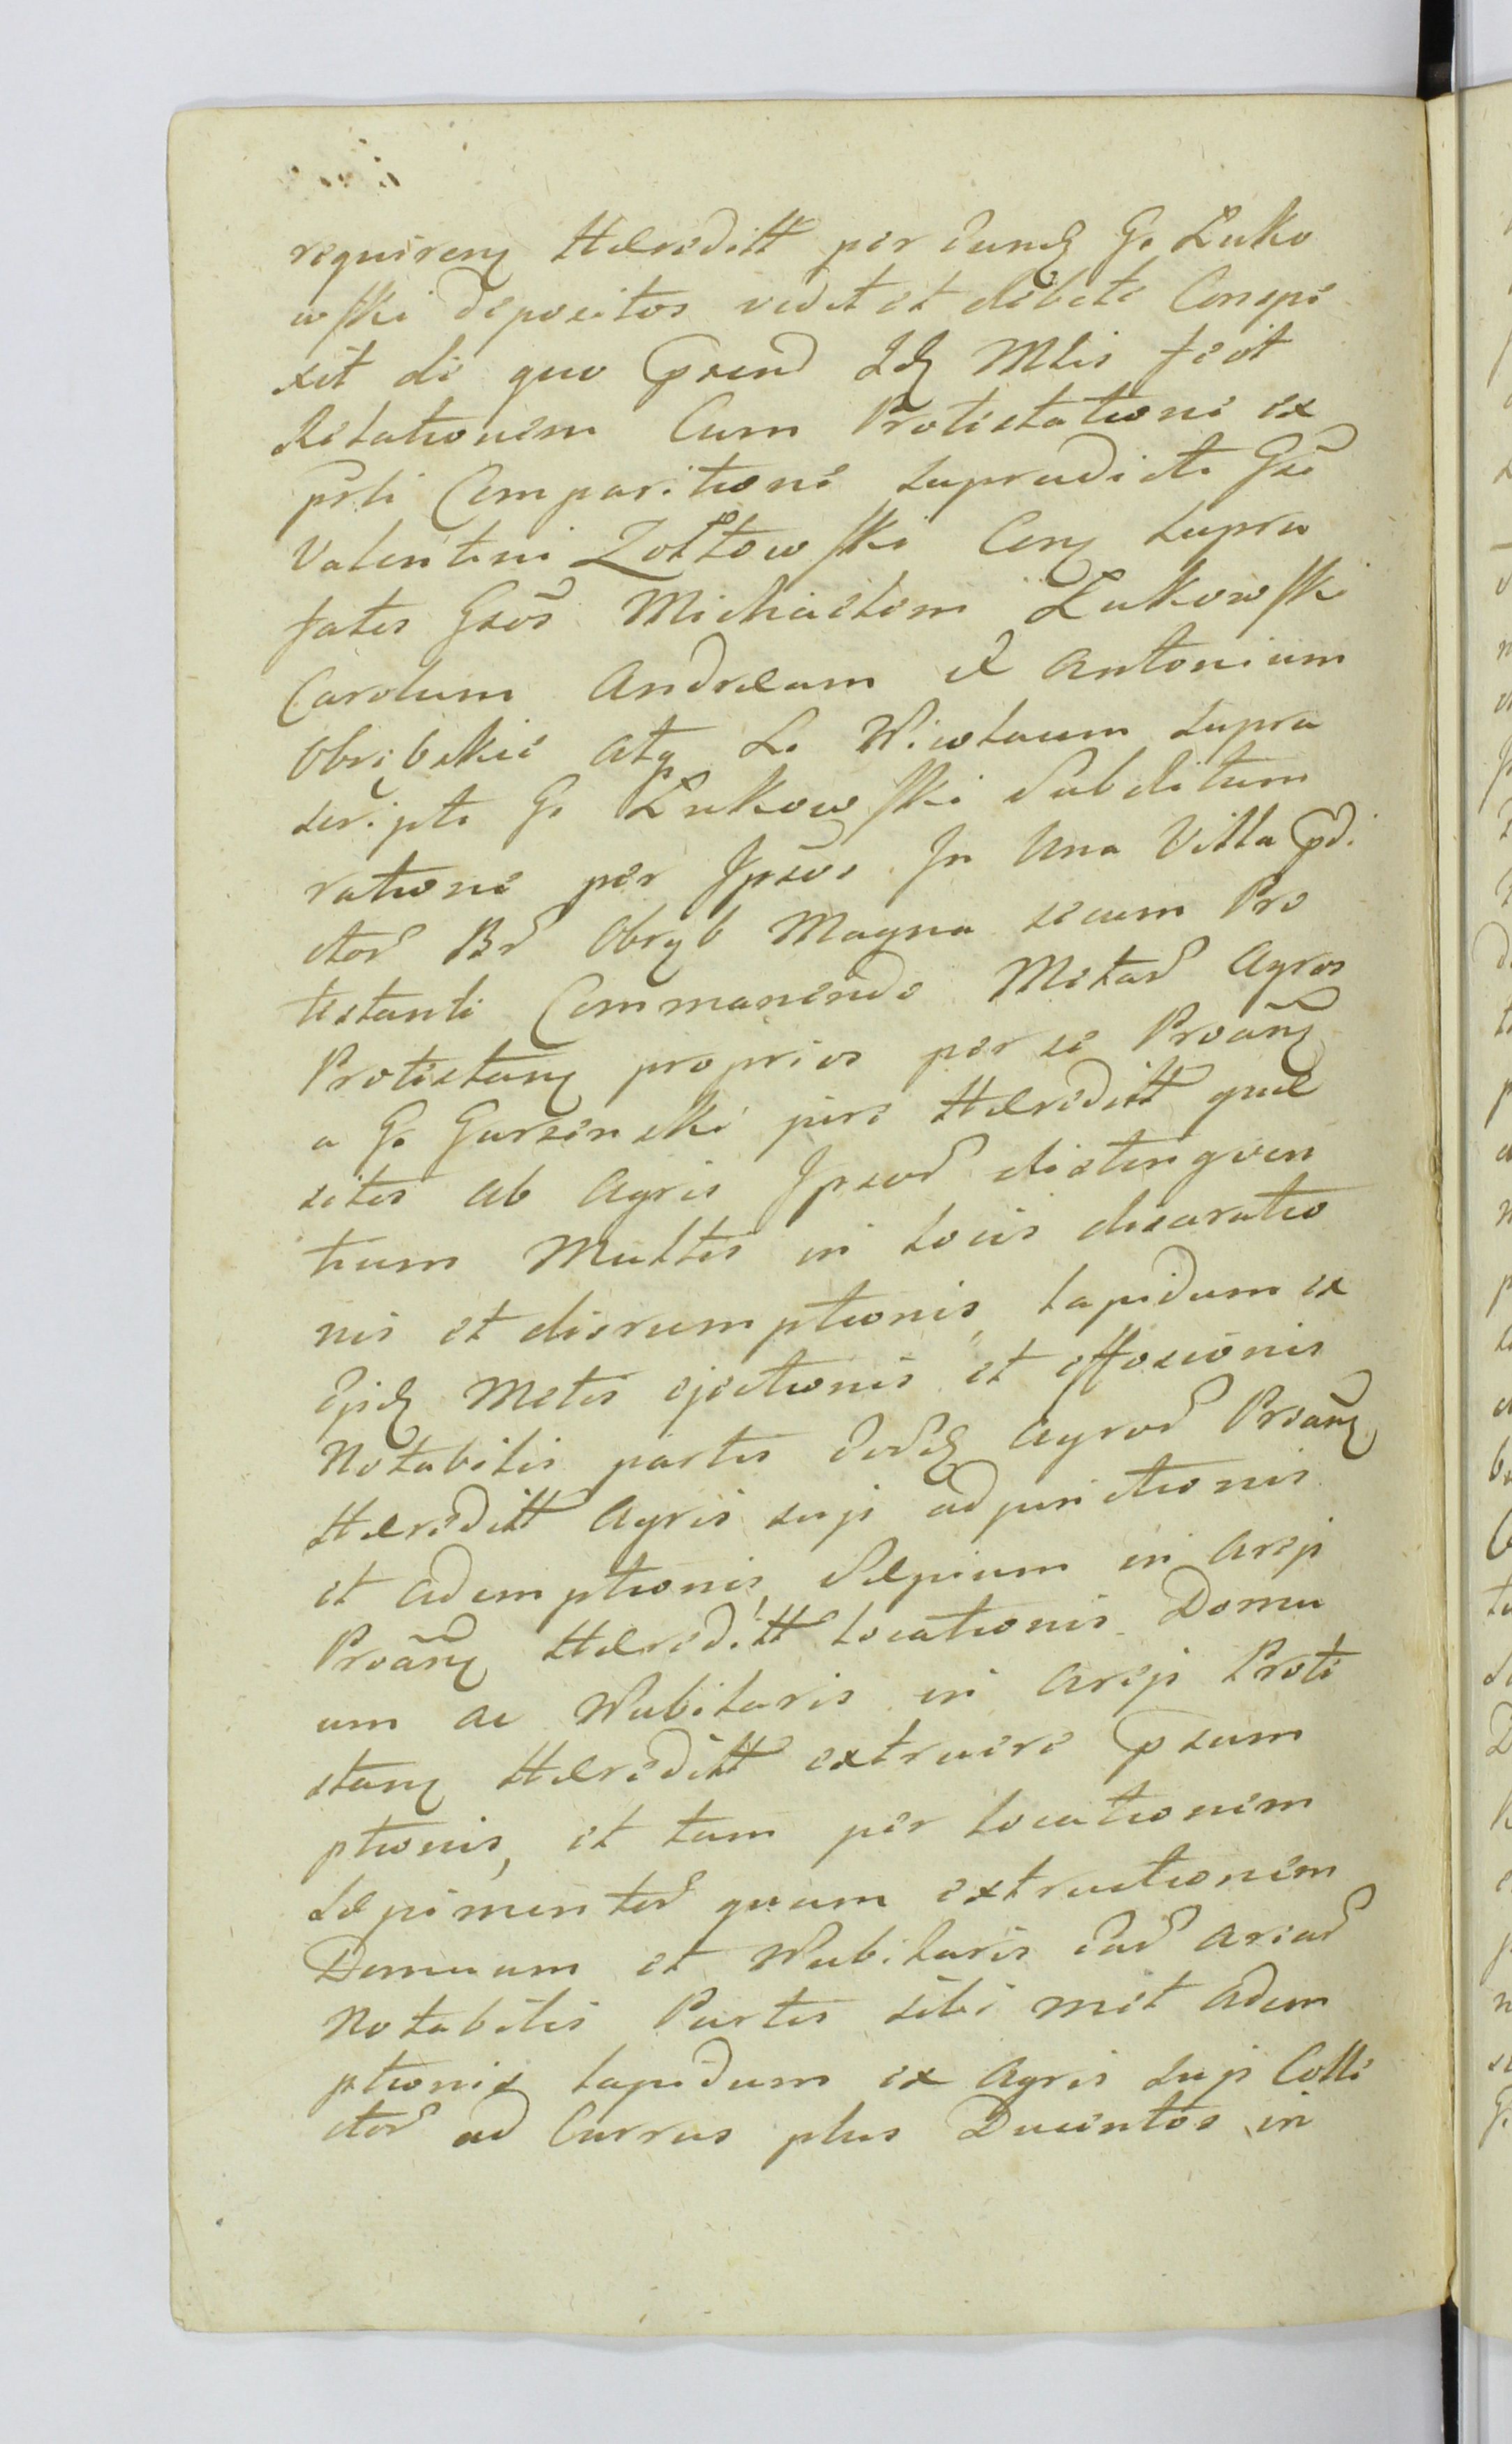 requirenꝫ Hæreditt per eundꝫ G. Łuko
wski depositos vidit et debite Conspe
xit de quo pꝛænd Idꝫ Mlis fecit
Relationem Cum Protestatione ex
prti Comparitione supradicti Gsi
Valentini Zołtowski Conꝫ supra
fatos Gsos Michaelem Łukowski
Carolum Andræam et Antonium
Obrębskie atq L. Wiwlaum supra
scripti G. Łukowski Subditum
ratione per Ipsos In Una Villa pd.
ctoꝝ Br Obrąb Magna secum Pro
testanti Commanendo Metaꝝ Agros
Protestanꝫ proprios per se Proãnꝫ
a G. Garsenski jure Hæreditt quæ
sitos ab Agris Ipsoꝝ distingven
tium Multis in locis disaratio
nis et disrumptionis, lapidum ex
Ejsdꝫ Metis ejectionis et effossionis
Notabilis partis Eorꝫ Agroꝝ Proãnꝫ
Hæreditt Agris suis adjunctionis
et Ademptionis, Sæpium in Areis
Proãnꝫ Hæreditt locationis Domu
um ac Wubitaris in Areis Prote
stanꝫ Hæreditt extruere præsum
ptionis, et tam per locationem
Sæpimentoꝝ quam extructionem
Domuum et Wubitaris eaꝝ Areaꝝ
Notabilis Partis sibi met Adem
ptionis lapidum ex Agris suis Colle
ctoꝝ ad Currus plus Ducentos in